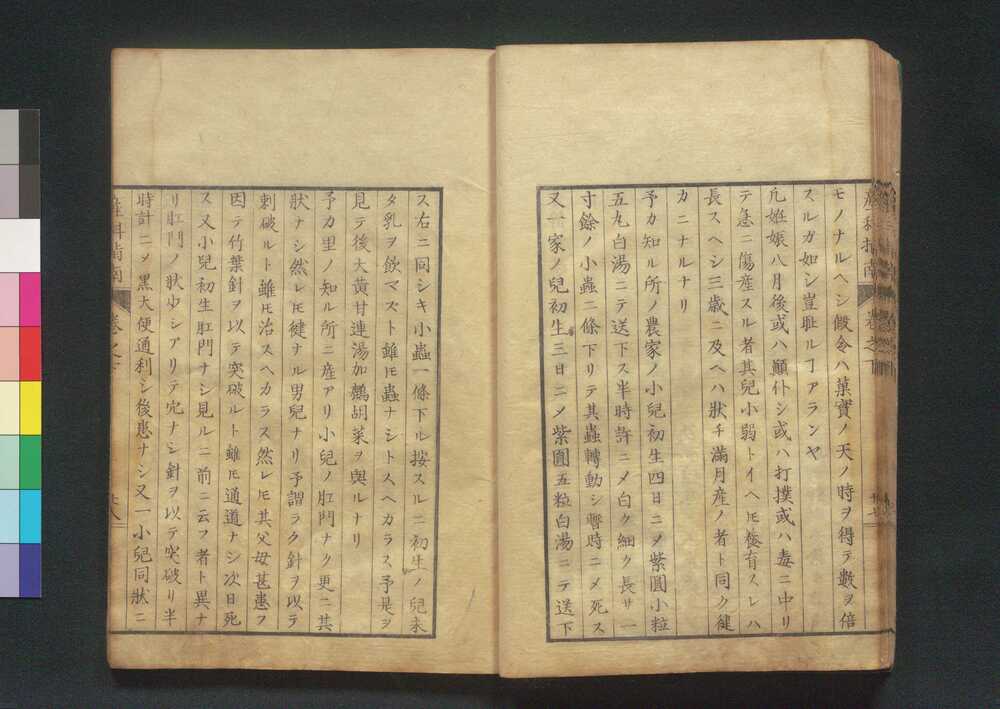 産科指南 卷之下
モノナルヘシ假令ハ菓實ノ天ノ時ヲ得テ數ヲ倍
スルガ如シ豈耻ルヿアランヤ
凢姙娠八月後或ハ顚仆シ或ハ打撲或ハ毒ニ中リ
テ急ニ傷産スル者其兒小弱トイヘ𪜈養育スレハ
長スヘシ三歳ニ及ヘハ狀チ滿月産ノ者ト同ク健
カニナルナリ
予カ知ル所ノ農家ノ小兒初生四日ニメ紫圓小粒
五丸白湯ニテ送下ス半時許ニメ白ク細ク長サ一
寸餘ノ小蟲二條下リテ其蟲轉動シ暫時ニメ死ス
又一家ノ兒初生三日ニメ紫圓五粒白湯ニテ送下
ス右ニ同シキ小蟲一條下ル按スルニ初生ノ兒未
タ乳ヲ飲マズト雖𪜈蟲ナシトスヘカラス予是ヲ
見テ後大黄甘連湯加鷓胡菜ヲ與ルナリ
予カ里ノ知ル所ニ産アリ小兒ノ肛門ナク更ニ其
狀ナシ然レ𪜈健ナル男兒ナリ予謂ラク針ヲ以テ
刺破ルト雖𪜈治スヘカラス然レ𪜈其父母甚患フ
因テ竹葉針ヲ以テ突破ルト雖𪜈通道ナシ次日死
ス又小兒初生肛門ナシ見ルニ前ニ云フ者ト異ナ
リ肛門ノ狀少シアリテ穴ナシ針ヲ以テ突破リ半
時計ニメ黒大便通利シ後患ナシ又一小兒同狀ニ
産科指南 卷之下